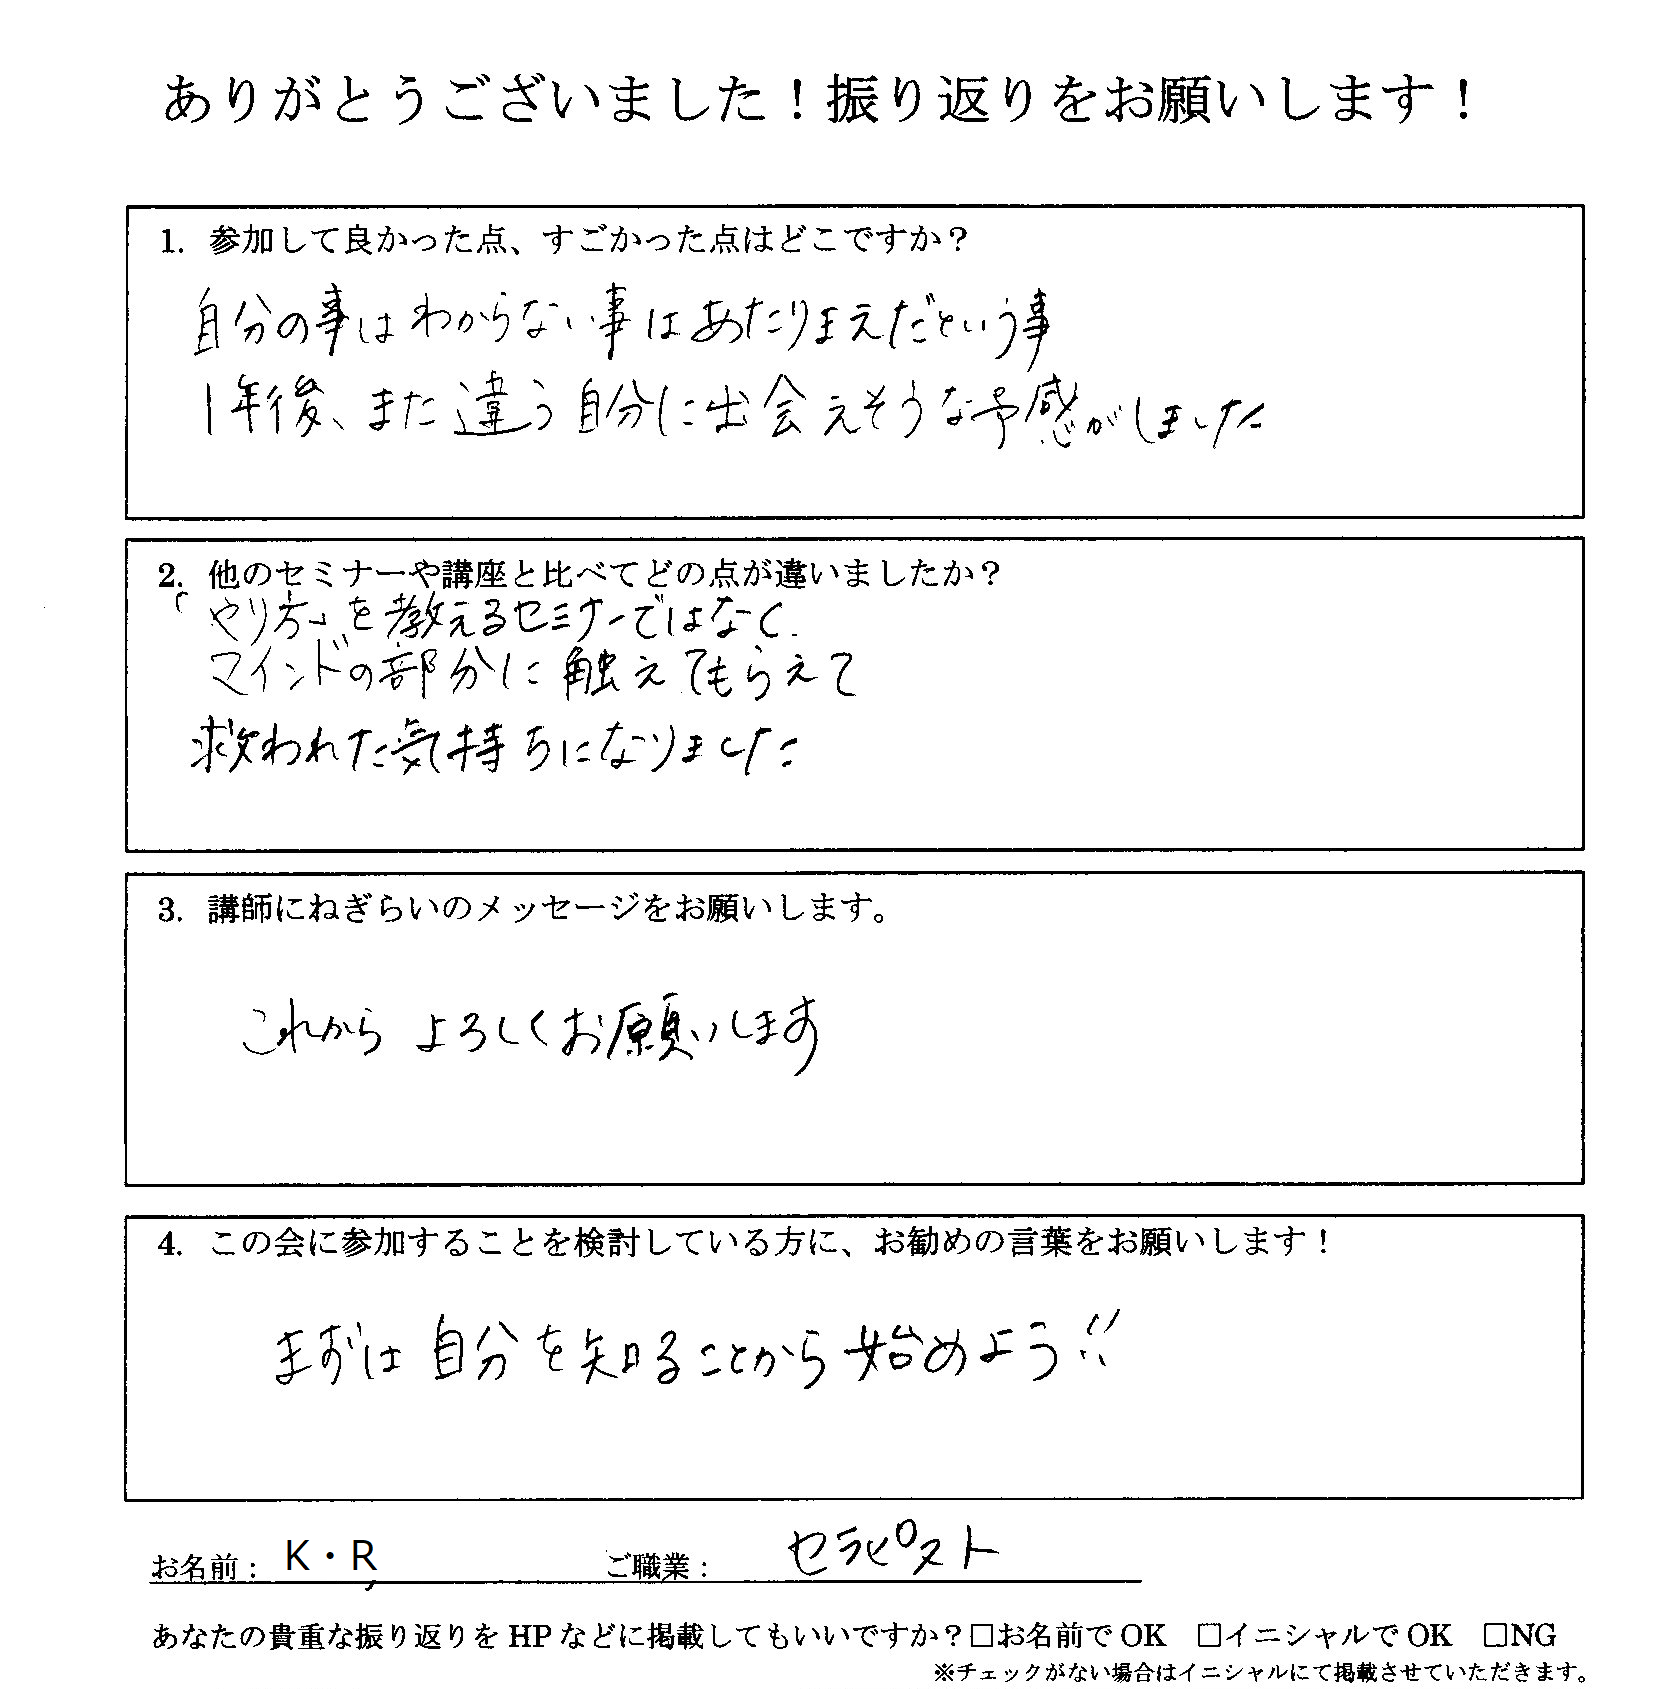 ありがとうございました！振り返りをお願いします！
1. 参加して良かった点、すごかった点はどこですか？
自分の事はわからない事はあたりまえだという事
1年後、また違う自分に出会えそうな予感がしました
2. 他のセミナーや講座と比べてどの点が違いましたか？
「やり方」を教えるセミナーではなく、
マインドの部分に触えてもらえて
救われた気持ちになりました
3. 講師にねぎらいのメッセージをお願いします。
これから よろしくお願いします
4. この会に参加することを検討している方に、お勧めの言葉をお願いします！
まずは 自分を知ることから始めよう!!
お名前： K・R ご職業： セラピスト
あなたの貴重な振り返りを HP などに掲載してもいいですか？□お名前で OK □イニシャルで OK □NG
※チェックがない場合はイニシャルにて掲載させていただきます。